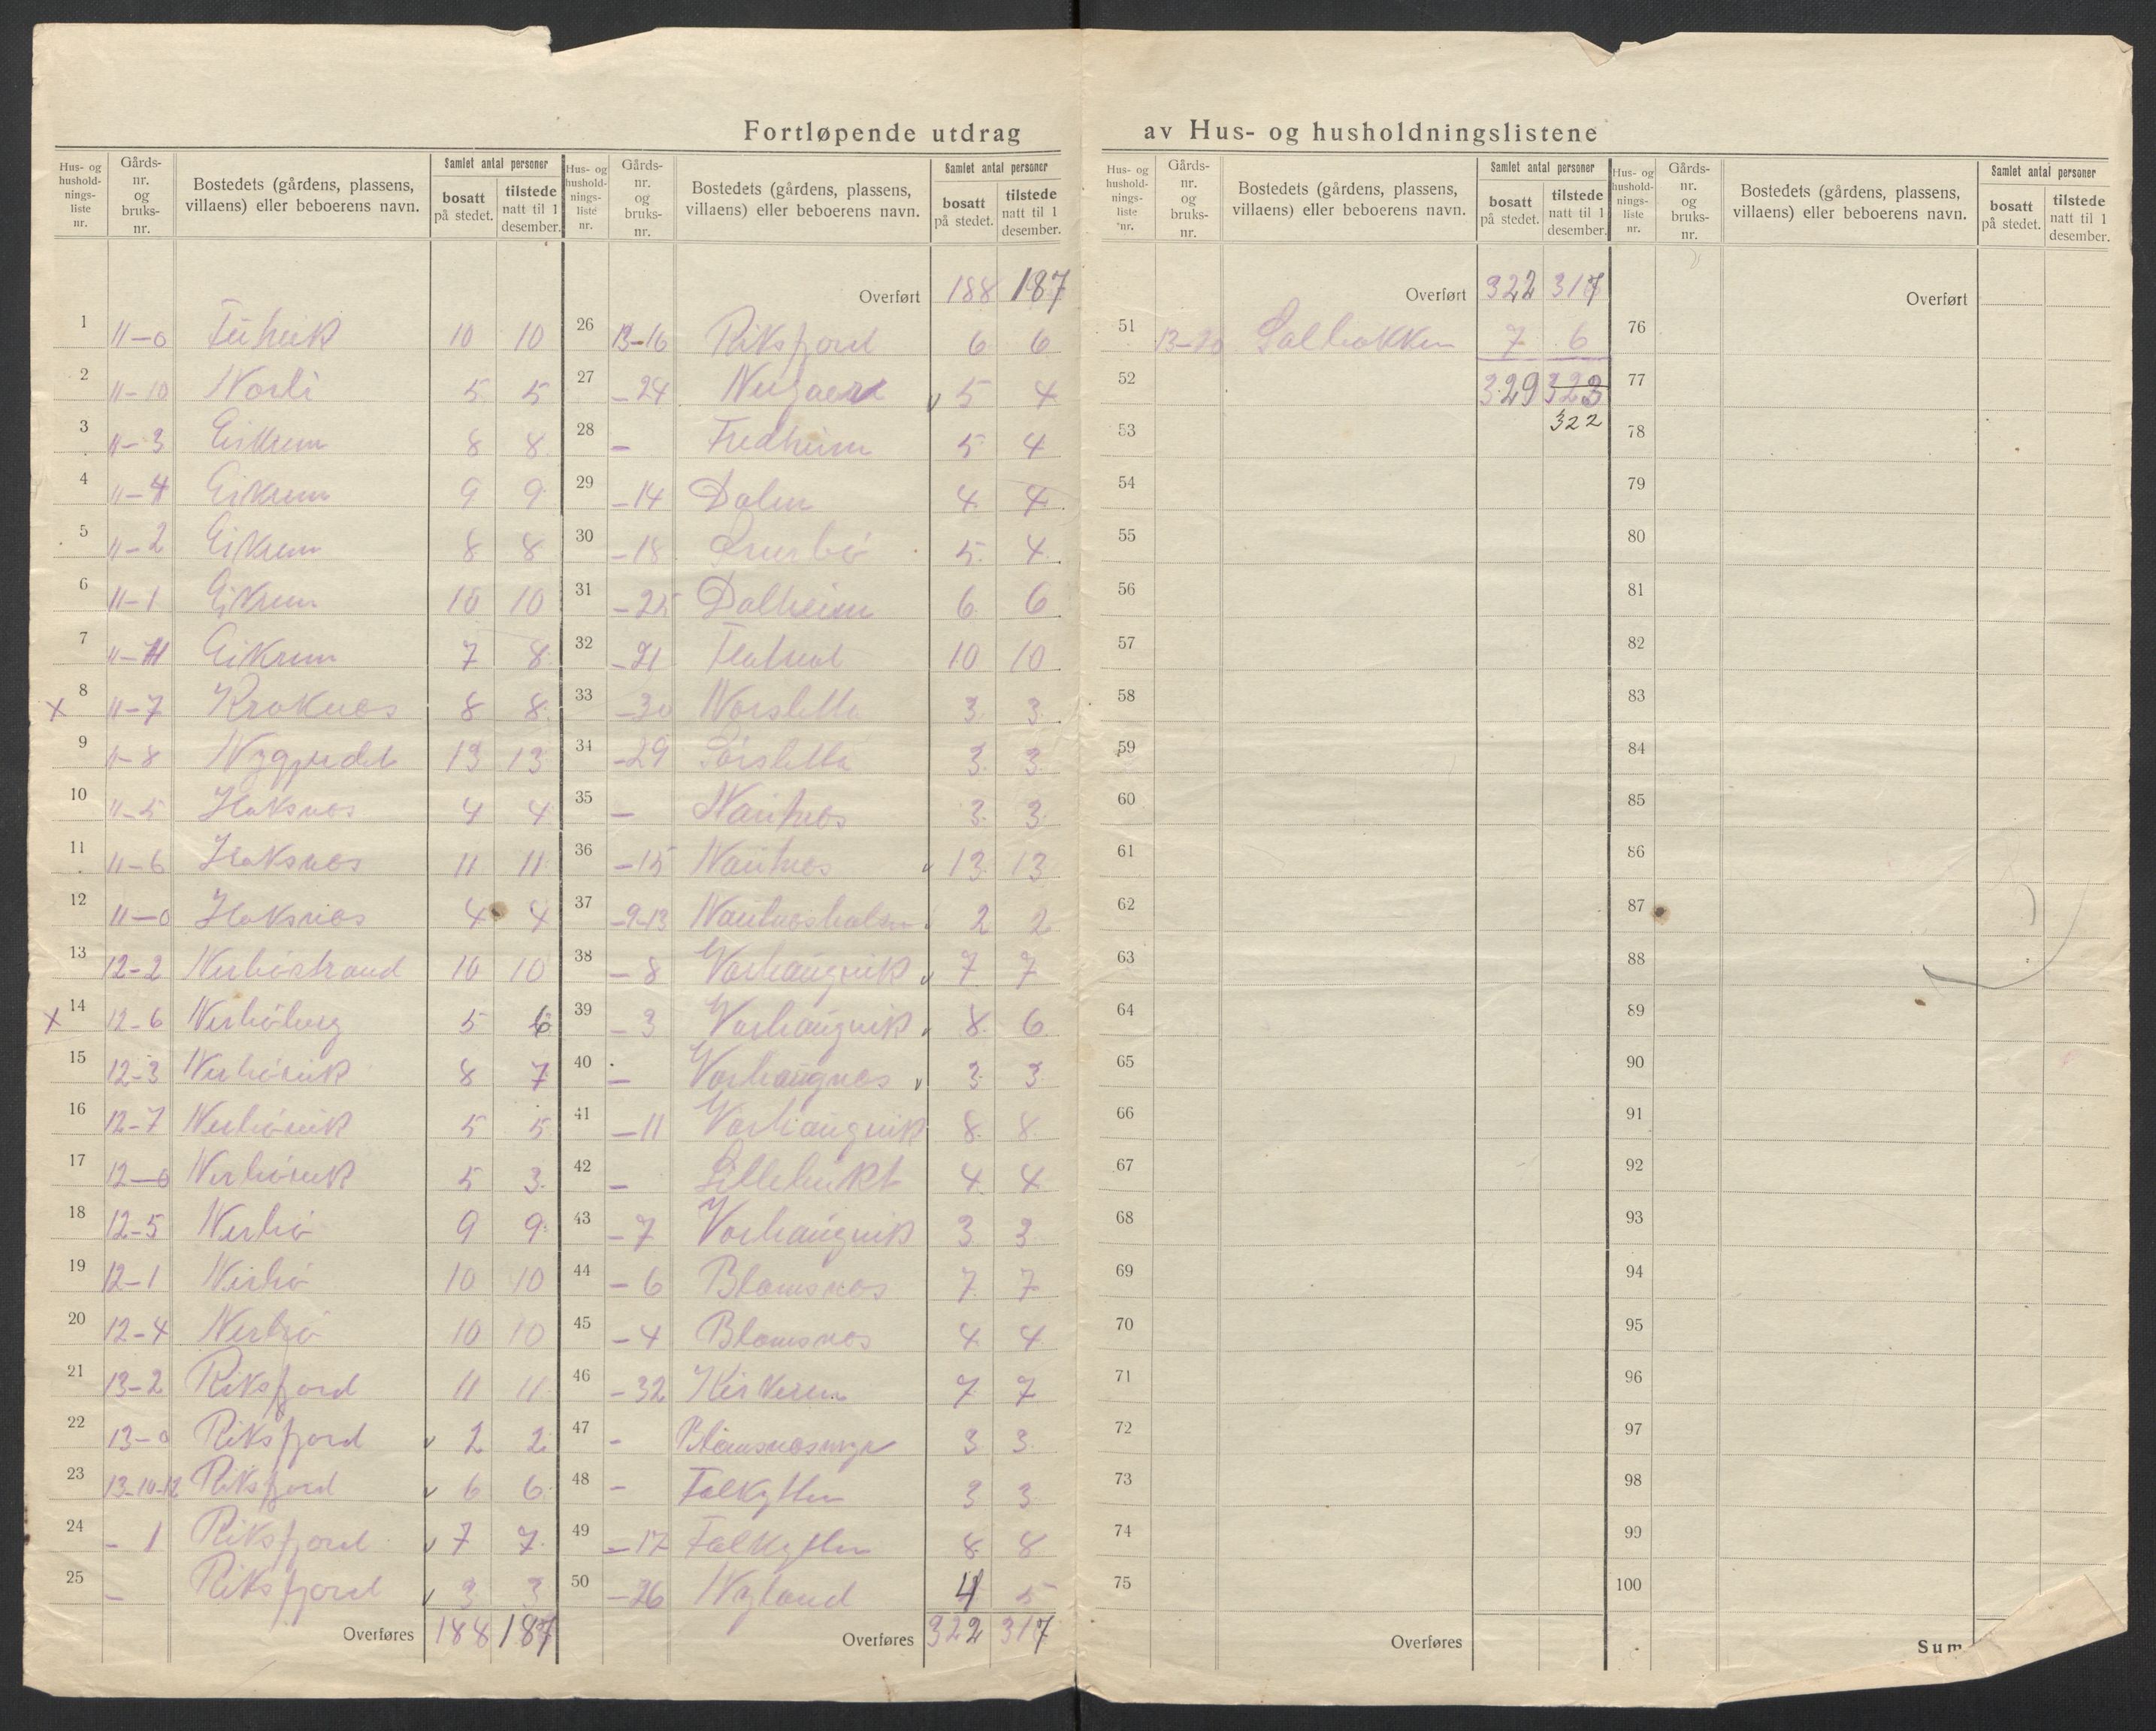 Fortløpende utdrag av Hus- og husholdningslistene
Hus- og hushold-nings-liste nr. Gårds-nr. og bruks-nr. Bostedets (gårdens, plassens, villaens) eller beboerens navn. Samlet antal personer bosatt på stedet. tilstede natt til 1 desember.
1 11-0 10 10
2 11-10 Norli 5 5
3 11-3 Eikrem 8 8
4 11-4 Eikrem 9 9
5 11-2 Eikrem 8 8
6 11-1 Eikrem 10 10
7 Eikrem 7 8
x 8 11-7 Kraknes 8 8
9 11-8 Nygjerdet 13 13
10 11-5 Haksnes 4 4
11 11-6 Haksnes 11 11
12 11-0 Haksnes 4 4
13 12-2 Nerbøstrand 10 10
x 14 12-6 Nerbøberg 5 6
15 12-3 Nerbøvik 8 7
16 12-7 Nerbøvik 5 5
17 12-0 Nerbøvik 5 3
18 12-5 Nerbø 9 9
19 12-1 Nerbø 10 10
20 12-4 Nerbø 10 10
21 13-2 Riksfjord 11 11
22 13-0 Riksfjord 2 2
23 13-10-12 Riksfjord 6 6
24 - 1 Riksfjord 7 7
25 - Riksfjord 3 3
Overføres 188 187
Hus- og hushold-nings-liste nr. Gårds-nr. og bruks-nr. Bostedets (gårdens, plassens, villaens) eller beboerens navn. Samlet antal personer bosatt på stedet. tilstede natt til 1 desember.
Overført 188 187
26 13-16 Riksfjord 6 6
27 -24 Nergaard 5 4
28 - Fredheim 5 4
29 -14 Dalen 4 4
30 -18 5 4
31 -25 Dalheim 6 6
32 -21 10 10
33 -30 Norsletta 3 3
34 -29 Sørsletta 3 3
35 - Nautnes 3 3
36 -15 Nautnes 13 13
37 -9-13 Nautnesholmen 2 2
38 -8 Varhaugvik 7 7
39 -3 Varhaugvik 8 6
40 - Varhaugnes 3 3
41 -11 Varhaugvik 8 8
42 - Lillebukt 4 4
43 -7 Varhaugvik 3 3
44 -6 Blomsnes 7 7
45 -4 Blomsnes 4 4
46 -32 Kirkerem 7 7
47 - Blomsnesmyr 3 3
48 - Falkytten 3 3
49 -17 Falkytten 8 8
50 -26 Nyland 4 5
Overføres 322 317
Hus- og hushold-nings-liste nr. Gårds-nr. og bruks-nr. Bostedets (gårdens, plassens, villaens) eller beboerens navn. Samlet antal personer bosatt på stedet. tilstede natt til 1 desember.
Overført 322 317
51 13-20 Solbakken 7 6
52 329 323
53 322
54
55
56
57
58
59
60
61
62
63
64
65
66
67
68
69
70
71
72
73
74
75
Overføres
Hus- og hushold-nings-liste nr. Gårds-nr. og bruks-nr. Bostedets (gårdens, plassens, villaens) eller beboerens navn. Samlet antal personer bosatt på stedet. tilstede natt til 1 desember.
Overført
76
77
78
79
80
81
82
83
84
85
86
87
88
89
90
91
92
93
94
95
96
97
98
99
100
Sum